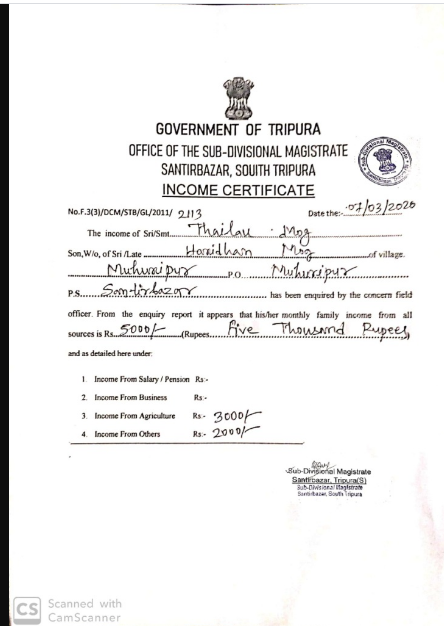 GOVERNMENT OF TRIPURA
OFFICE OF THE SUB-DIVISIONAL MAGISTRATE
SANTIRBAZAR, SOUTH TRIPURA
INCOME CERTIFICATE
No.F.3(3)/DCM/STB/GL/2011/ 2113 Date the:- 07/03/2020
The income of Sri/Smt. Thailau Mog
Son,W/o, of Sri /Late Haridhan Mog of village.
Muhuripur P.O Muhuripur
P.S. Santirbazar has been enquired by the concern field
officer. From the enquiry report it appears that his/her monthly family income from all
sources is Rs. 5000/- (Rupees Five Thousand Rupees)
and as detailed here under:
1. Income From Salary / Pension Rs:-
2. Income From Business Rs:-
3. Income From Agriculture Rs:- 3000/-
4. Income From Others Rs:- 2000/-
Sub-Divisional Magistrate
Santirbazar, Tripura(S)
Sub-Divisional Magistrate
Santirbazar, South Tripura
CS Scanned with
CamScanner